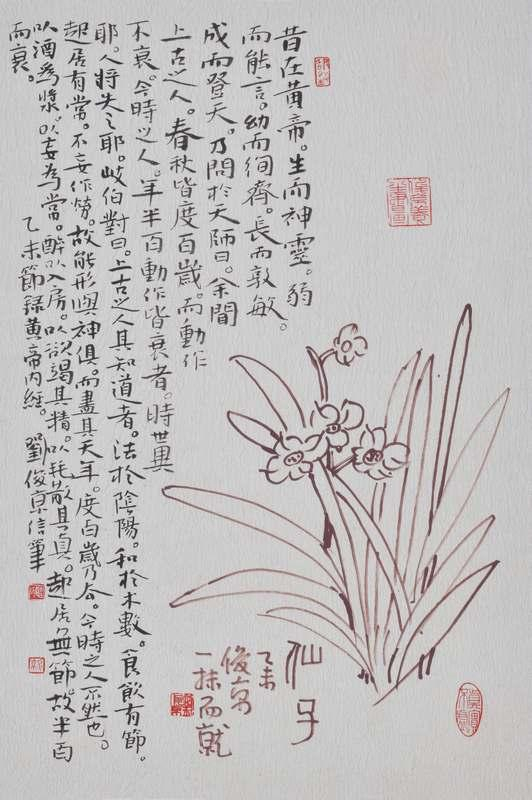 昔在黄帝。生而神靈。弱
而能言。幼而徇齊。長而敦敏。
成而登天。乃問於天師曰。余聞
上古之人。春秋皆度百歲。而動作
不衰。今時之人。年半百動作皆衰者。時世異
耶。人將失之耶。岐伯對曰。上古之人其知道者。法於陰陽。和於木數。食飲有節。
起居有常。不妄作勞。故能形與神俱。而盡其天年。度百歲乃去。今時之人不然也。
以酒為漿。以妄為常。醉以入房。以欲竭其精。以耗散其真。起居無節。故半百
而衰。
乙未節録黄帝内經。劉俊京信筆
仙子
乙未
俊京
一抹而就